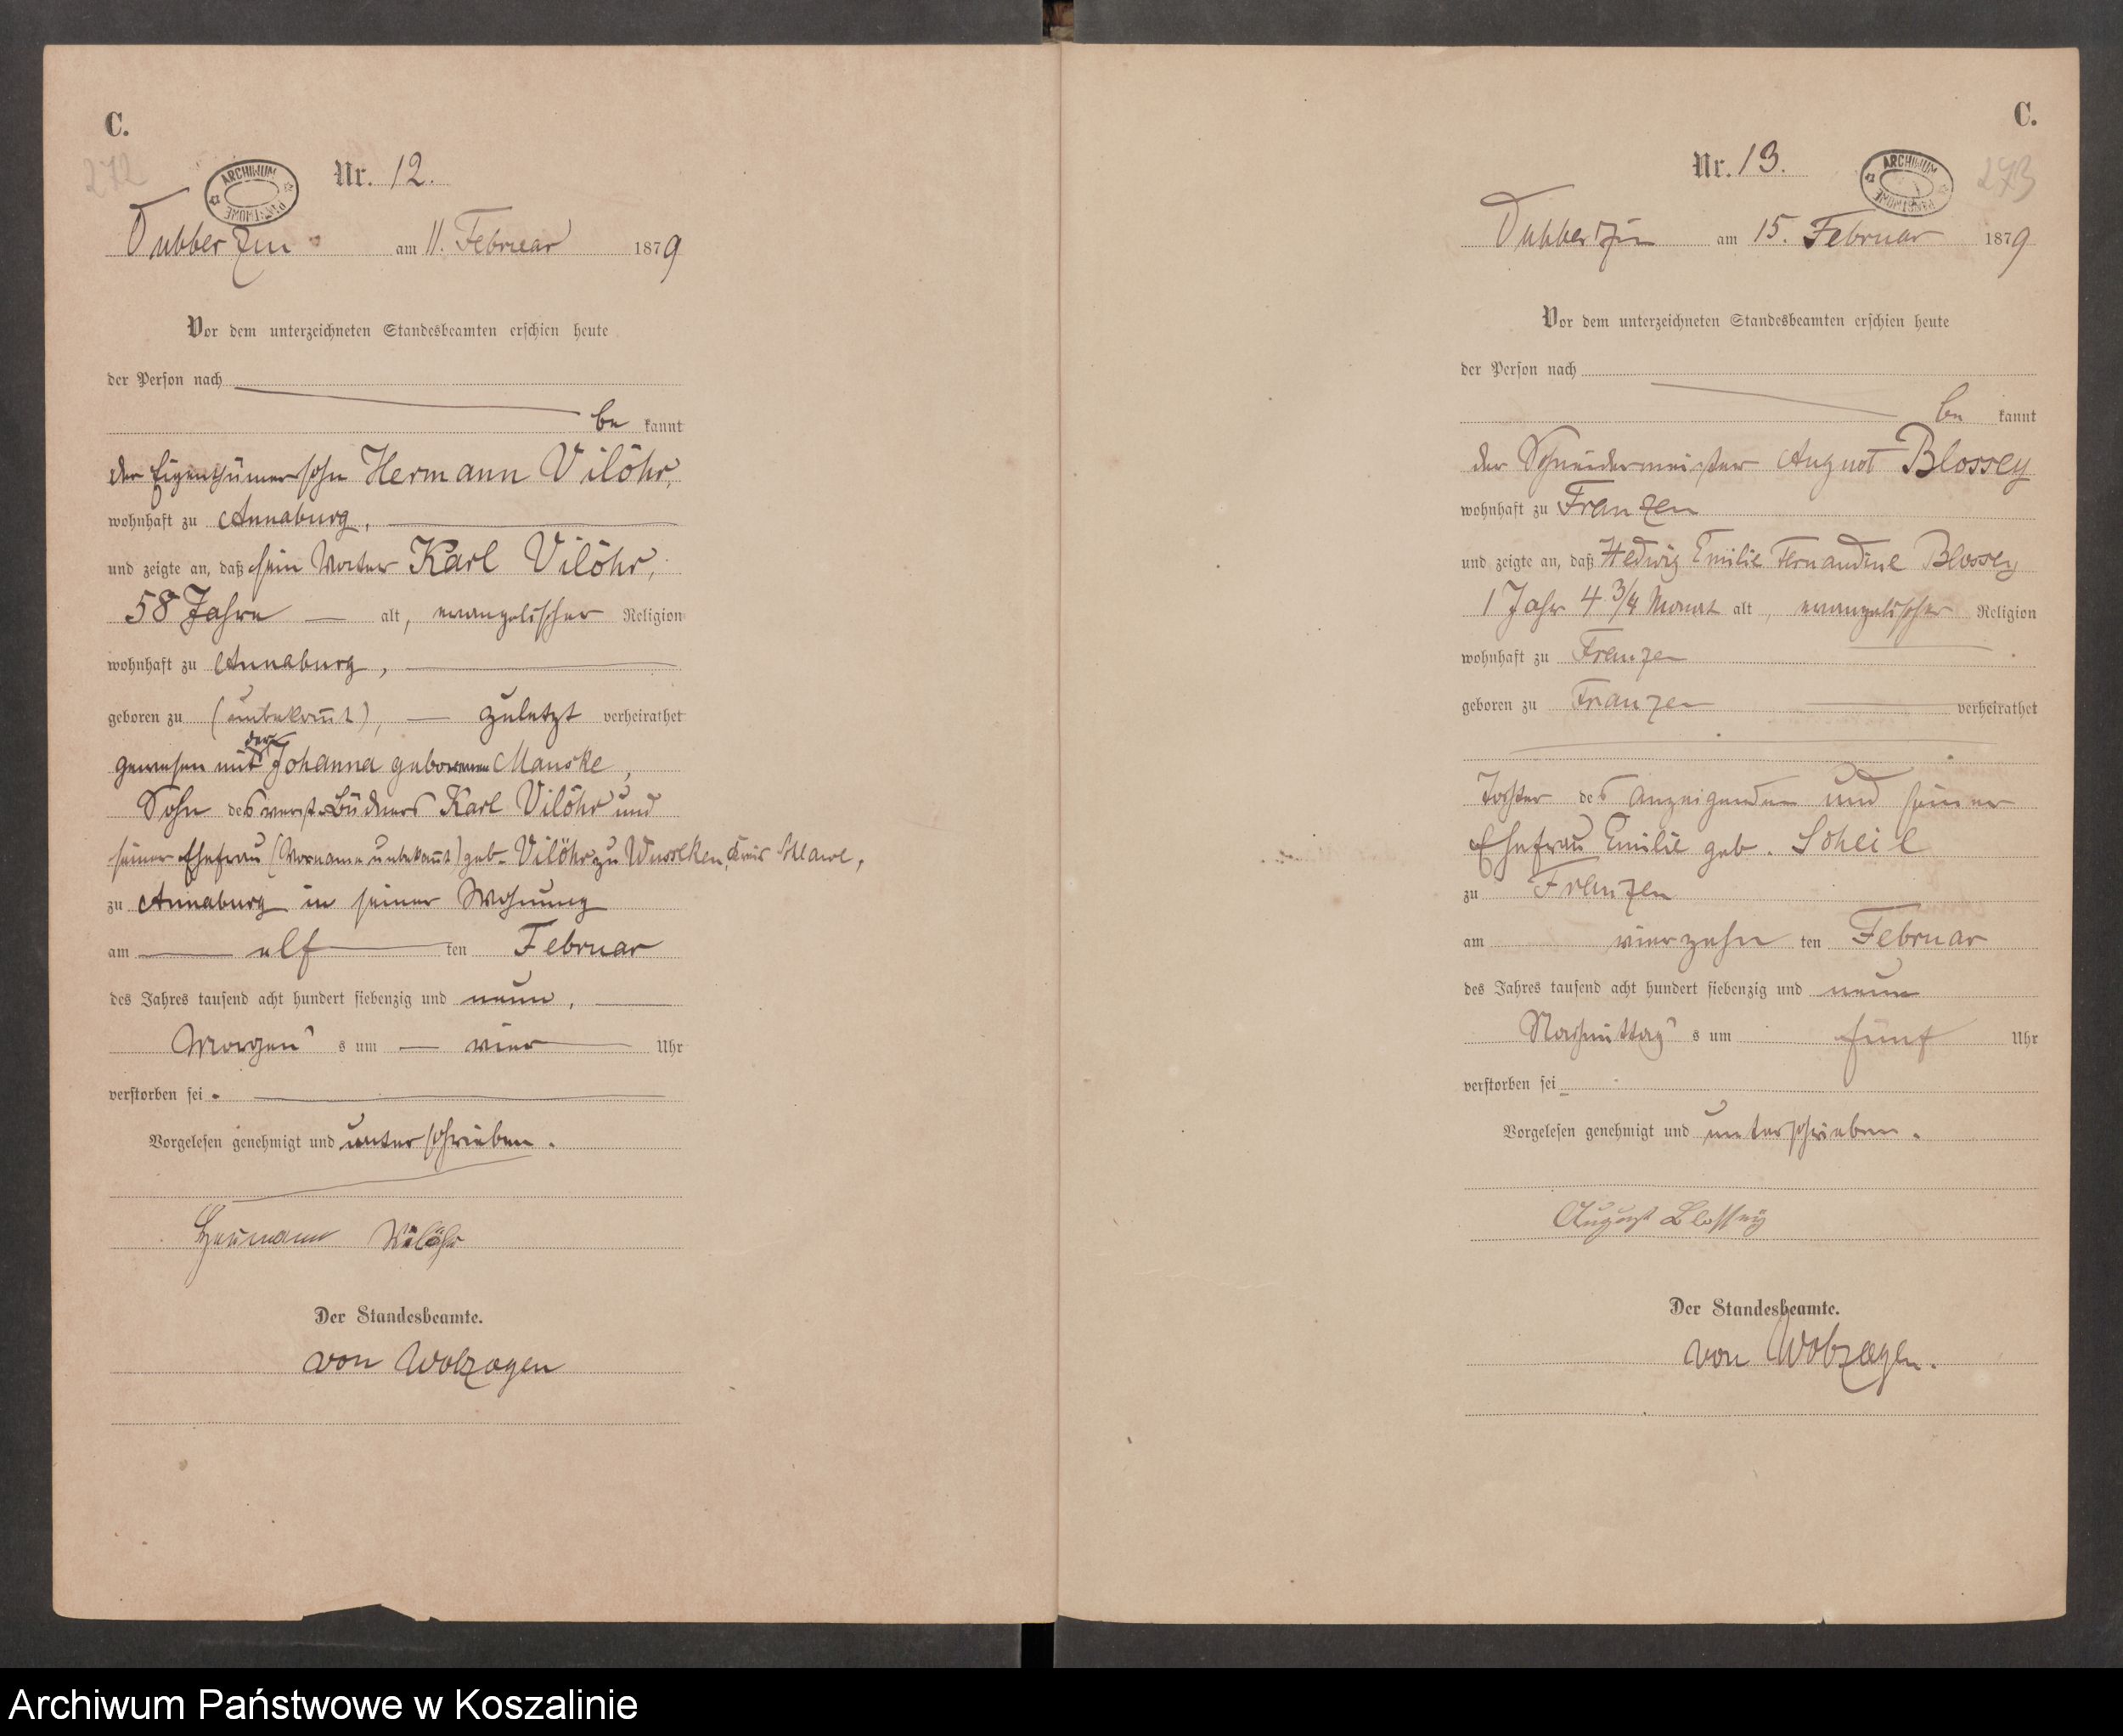 C.
272
ARCHIWUM PAŃSTWOWE
Nr. 12.
Dubberzin am 11. Februar 1879
Vor dem unterzeichneten Standesbeamten erschien heute
der Person nach
be kannt
der Eigenthümersohn Hermann Vilöhr,
wohnhaft zu Annaburg,
und zeigte an, daß sein Vater Karl Vilöhr,
58 Jahre alt, evangelischer Religion
wohnhaft zu Annaburg,
geboren zu (unbekannt), zuletzt verheirathet
gewesen mit der Johanna geborenen Manske,
Sohn des verst. Büdners Karl Vilöhr und
seiner Ehefrau (Vorname unbekannt) geb. Vilöhr zu Wusseken, Kreis Schlawe,
zu Annaburg in seiner Wohnung
am elf ten Februar
des Jahres tausend acht hundert siebenzig und neun,
Morgen s um vier Uhr
verstorben sei.
Vorgelesen genehmigt und unterschrieben.
Hermann Vilöhr
Der Standesbeamte.
von Wolzogen
C.
273
ARCHIWUM PAŃSTWOWE
Nr. 13.
Dubberzin am 15. Februar 1879
Vor dem unterzeichneten Standesbeamten erschien heute
der Person nach
be kannt
der Schneidermeister August Blossey
wohnhaft zu Franzen
und zeigte an, daß Hedwig Emilie Fernandine Blossey
1 Jahr 4 3/4 Monat alt, evangelischer Religion
wohnhaft zu Franzen
geboren zu Franzen verheirathet
Tochter des Anzeigenden und seiner
Ehefrau Emilie geb. Scheil
zu Franzen
am vierzehn ten Februar
des Jahres tausend acht hundert siebenzig und neun
Nachmittag s um fünf Uhr
verstorben sei
Vorgelesen genehmigt und unterschrieben.
August Blossey
Der Standesbeamte.
von Wolzogen.
Archiwum Państwowe w Koszalinie